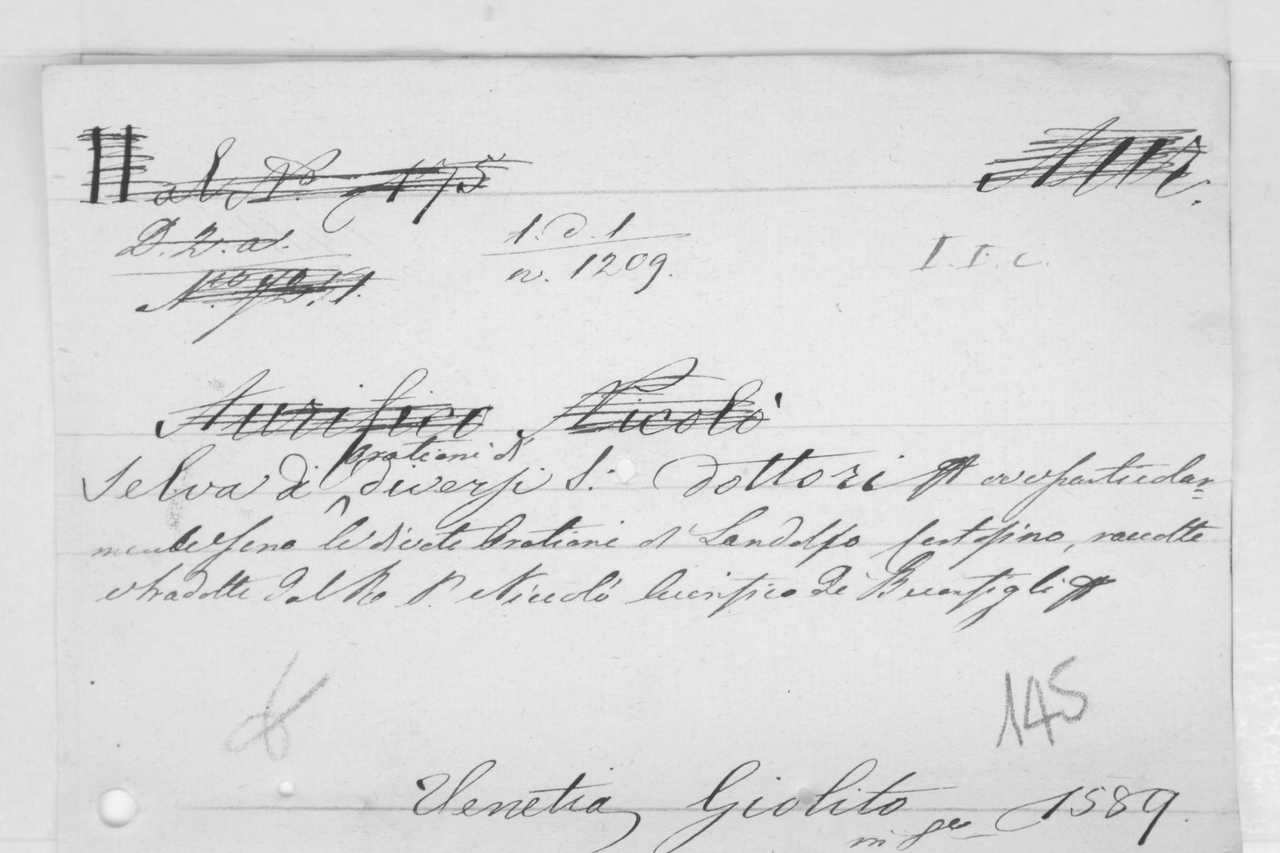 D. 2. a.
1. d. 1
n. 1209.
I. I. C.
Aurifico Nicolò
Selva di orationi di diversi S. Dottori ove particolar=
mente sono le divote Orationi di Landolfo Certosino, raccolte
e tradotte dal R. P. Niccolò Aurifico de Buonfigli
145
Venetia Giolito 1589.
in